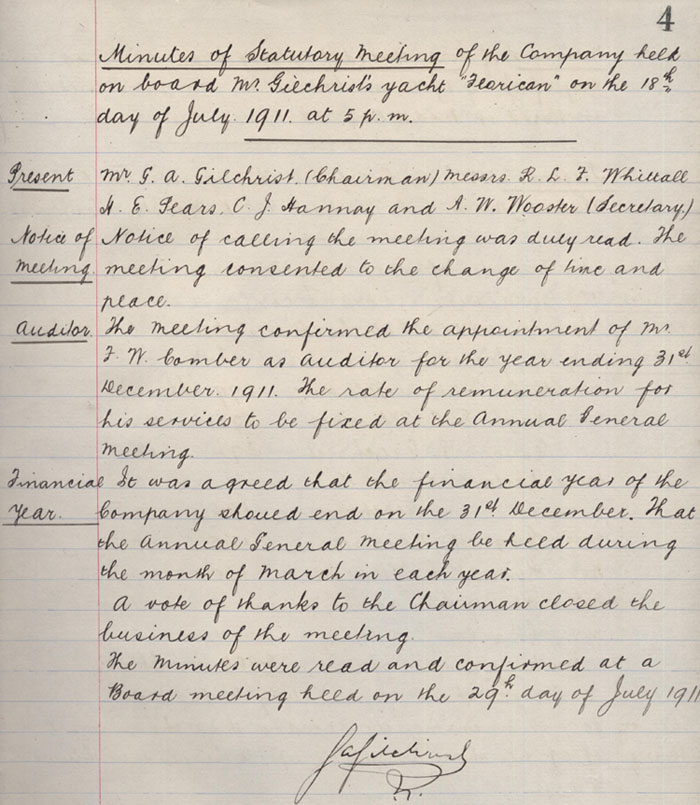 4
Minutes of Statutory Meeting of the Company held
on board Mr. Gilchrist's yacht "Florican" on the 18th
day of July 1911. at 5 p.m.
Present Mr G. A. Gilchrist (Chairman) Messrs R. L. F. Whittall
H. E. Sears, C. J. Hannay and A. W. Wooster (Secretary.)
Notice of Notice of calling the meeting was duly read. The
meeting meeting consented to the change of time and
place.
Auditor. The meeting confirmed the appointment of Mr
F. W. Comber as auditor for the year ending 31st
December. 1911. The rate of remuneration for
his services to be fixed at the Annual General
Meeting.
Financial It was agreed that the financial year of the
Year. Company should end on the 31st December. That
the Annual General Meeting be held during
the month of March in each year.
A vote of thanks to the Chairman closed the
business of the meeting.
The Minutes were read and confirmed at a
Board meeting held on the 29th day of July 1911
G A Gilchrist